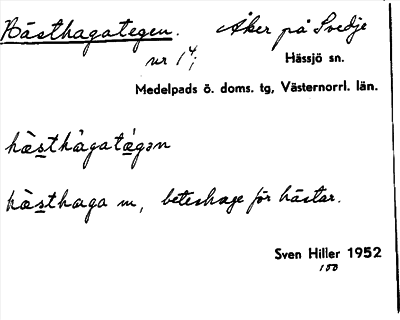 Hästhagategen. Åker på Svedje
nr 1⁴;
Hässjö sn.
Medelpads ö. doms. tg, Västernorrl. län.
hä̀s̲thàgatǽgən
hä̀s̲thaga m, beteshage för hästar.
Sven Hiller 1952
100